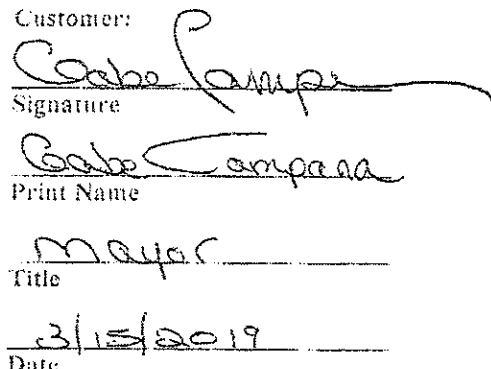 Customer:
Gabe Campa
Signature
Gabe Campana
Print Name
Mayor
Title
3/15/2019
Date